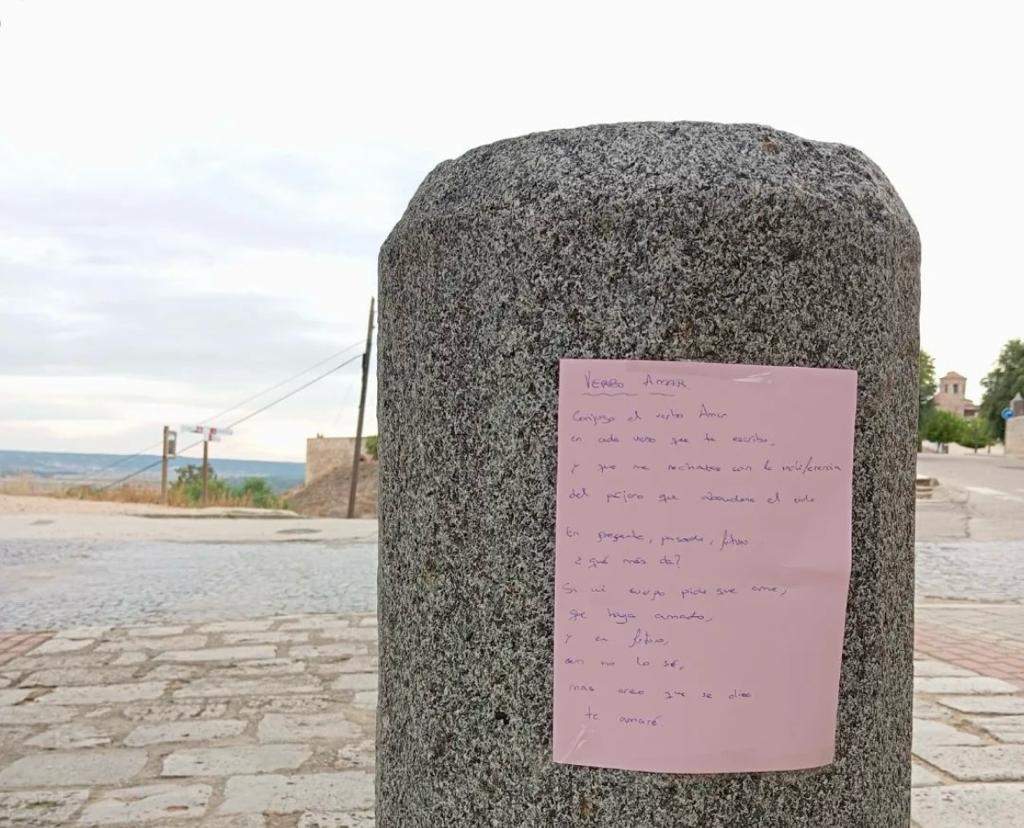 VERBO AMAR
Conjugo el verbo Amar
en cada verso que te escribo,
y que me rechazas con la indiferencia
del pájaro que abandona el nido
En presente, pasado, futuro
¿qué más da?
Si mi cuerpo pide que ame,
que haya amado,
y en futuro,
aun no lo sé,
mas creo que se dice
te amaré.